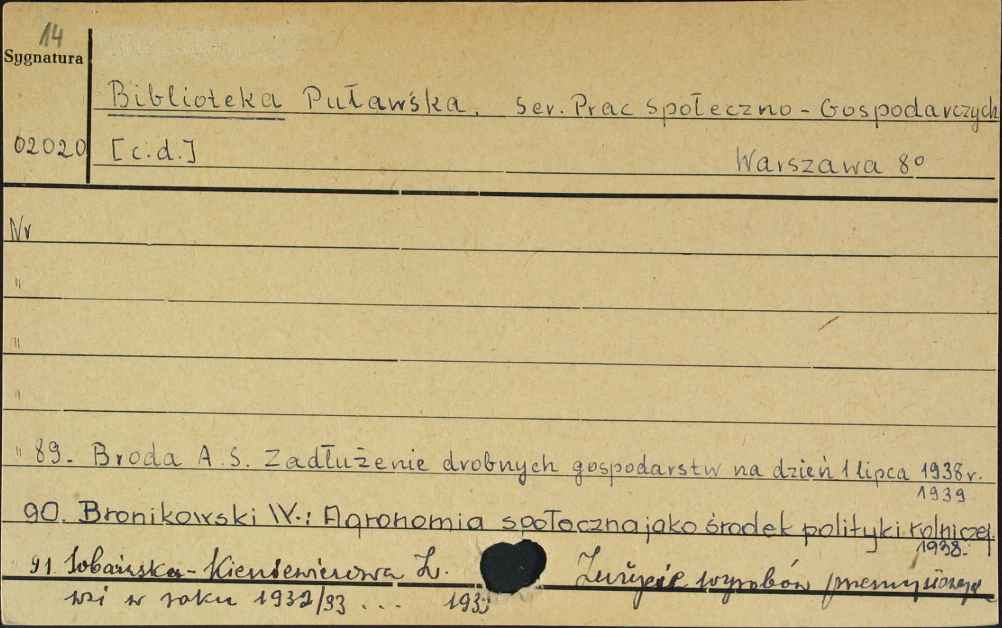 14
Sygnatura
Biblioteka Puławska. Ser. Prac Społeczno-Gospodarczych
02020 [c.d.] Warszawa 8º
Nr
"
"
"
" 89. Broda A.S. Zadłużenie drobnych gospodarstw na dzień 1 lipca 1938 r.
1939
90. Bronikowski W.: Agronomia społeczna jako środek polityki rolniczej.
1938.
91. Sobańska-Kieniewiczowa Z. Zużycie wyrobów przemysłowych
wsi w roku 1932/33 ... 193